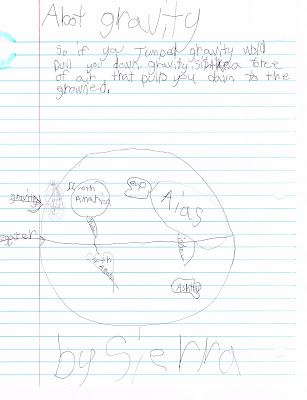 Abot gravity
So if you Jumped gravity wold
pull you down. gravity is like a force
of air that pulls you down to the
grownd.
gravity
North
Amarica
Aias
eqater
Asltry
by Sierra